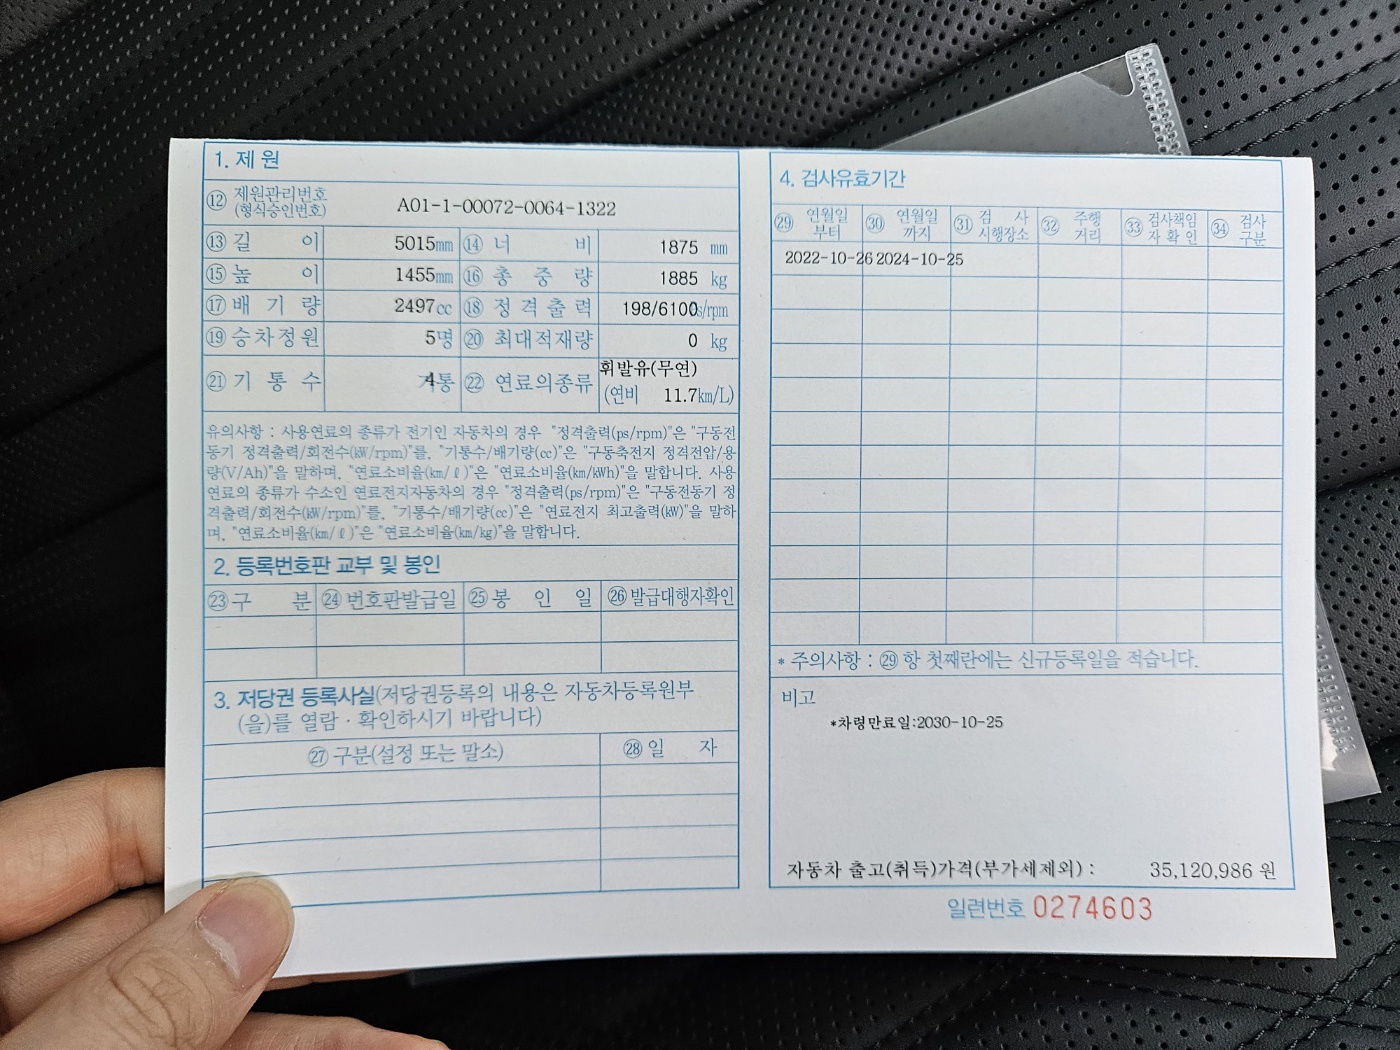 1. 제 원
⑫ 제원관리번호
(형식승인번호)
A01-1-00072-0064-1322
⑬ 길 이 5015mm ⑭ 너 비 1875 mm
⑮ 높 이 1455mm ⑯ 총 중 량 1885 kg
⑰ 배 기 량 2497cc ⑱ 정 격 출 력 198/6100ps/rpm
⑲ 승차정원 5명 ⑳ 최대적재량 0 kg
㉑ 기 통 수 4기통 ㉒ 연료의종류 휘발유(무연)
(연비 11.7km/L)
유의사항 : 사용연료의 종류가 전기인 자동차의 경우 "정격출력(ps/rpm)"은 "구동전
동기 정격출력/회전수(kW/rpm)"를, "기통수/배기량(cc)"은 "구동축전지 정격전압/용
량(V/Ah)"을 말하며, "연료소비율(km/ℓ)"은 "연료소비율(km/kWh)"을 말합니다. 사용
연료의 종류가 수소인 연료전지자동차의 경우 "정격출력(ps/rpm)"은 "구동전동기 정
격출력/회전수(kW/rpm)"를, "기통수/배기량(cc)"은 "연료전지 최고출력(kW)"을 말하
며, "연료소비율(km/ℓ)"은 "연료소비율(km/kg)"을 말합니다.
2. 등록번호판 교부 및 봉인
㉓ 구 분 ㉔ 번호판발급일 ㉕ 봉 인 일 ㉖ 발급대행자확인
3. 저당권 등록사실(저당권등록의 내용은 자동차등록원부
(을)를 열람 · 확인하시기 바랍니다)
㉗ 구분(설정 또는 말소) ㉘ 일 자
4. 검사유효기간
㉙ 연월일 부터 ㉚ 연월일 까지 ㉛ 검 사 시행장소 ㉜ 주행 거리 ㉝ 검사책임 자 확 인 ㉞ 검사 구분
2022-10-26 2024-10-25
* 주의사항 : ㉙ 항 첫째란에는 신규등록일을 적습니다.
비고
*차령만료일:2030-10-25
자동차 출고(취득)가격(부가세제외) : 35,120,986 원
일련번호 0274603